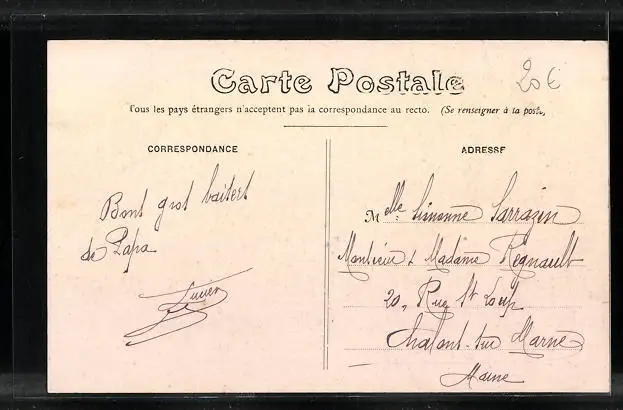 Carte Postale
20€
Tous les pays étrangers n'acceptent pas la correspondance au recto. (Se renseigner à la poste,
CORRESPONDANCE
Bons gros baisers
de Papa
Lucien
ADRESSE
Melle Simonne Sarrazin
Monsieur & Madame Regnault
20, Rue St Loup
Chalons-sur Marne
Marne